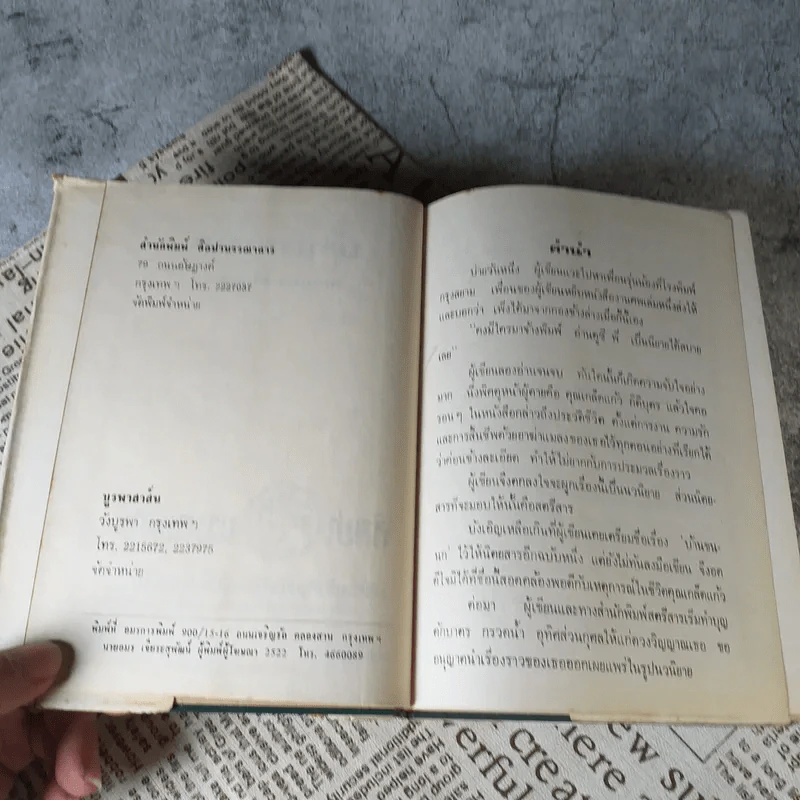 สำนักพิมพ์ ศิลปาบรรณาคาร
79 ถนนอัษฎางค์
กรุงเทพฯ โทร. 2227037
จัดพิมพ์จำหน่าย
บูรพาสาส์น
วังบูรพา กรุงเทพฯ
โทร. 2215672, 2237975
จัดจำหน่าย
พิมพ์ที่ อมรการพิมพ์ 900/15-16 ถนนเจริญรัถ คลองสาน กรุงเทพฯ
นายอมร เชียระสุพัฒน์ ผู้พิมพ์ผู้โฆษณา 2522 โทร. 4660089
คำนำ
บ่ายวันหนึ่ง ผู้เขียนแวะไปหาเพื่อนรุ่นน้องที่โรงพิมพ์
กรุงสยาม เพื่อนของผู้เขียนหยิบหนังสืองานศพเล่มหนึ่งส่งให้
และบอกว่า เพิ่งได้มาจากกองข้างล่างเมื่อกี้นี้เอง
"คงมีใครมาจ้างพิมพ์ อ่านดูซี พี่ เป็นนิยายได้สบาย
เลย"
ผู้เขียนลองอ่านจนจบ ทันใดนั้นก็เกิดความจับใจอย่าง
มาก นั่งพิศดูหน้าผู้ตายคือ คุณเกล็ดแก้ว กิติบุตร แล้วใจคอ
รอนๆ ในหนังสือกล่าวถึงประวัติชีวิต ตั้งแต่การงาน ความรัก
และการสิ้นชีพด้วยยาฆ่าแมลงของเธอไว้ทุกตอนอย่างที่เรียกได้
ว่าค่อนข้างละเอียด ทำให้ไม่ยากกับการประมวลเรื่องราว
ผู้เขียนจึงตกลงใจจะผูกเรื่องนี้เป็นนวนิยาย ส่วนนิตย-
สารที่จะมอบให้นั้นคือสตรีสาร
บังเอิญเหลือเกินที่ผู้เขียนเคยเตรียมชื่อเรื่อง 'บ้านขน-
นก' ไว้ให้นิตยสารอีกฉบับหนึ่ง แต่ยังไม่ทันลงมือเขียน จึงอด
ดีใจมิได้ที่ชื่อนี้สอดคล้องพอดีกับเหตุการณ์ในชีวิตคุณเกล็ดแก้ว
ต่อมา ผู้เขียนและทางสำนักพิมพ์สตรีสารเริ่มทำบุญ
ตักบาตร กรวดน้ำ อุทิศส่วนกุศลให้แก่ดวงวิญญาณเธอ ขอ
อนุญาตนำเรื่องราวของเธอออกเผยแพร่ในรูปนวนิยาย